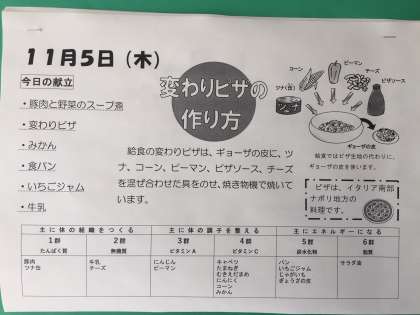 11月5日（木）
今日の献立
・豚肉と野菜のスープ煮
・変わりピザ
・みかん
・食パン
・いちごジャム
・牛乳
変わりピザの
作り方
コーン
ピーマン
チーズ
ツナ(缶)
ピザソース
ツナ
ギョーザの皮
給食ではピザ生地の代わりに、
ギョーザの皮を使います。
給食の変わりピザは、ギョーザの皮に、ツ
ナ、コーン、ピーマン、ピザソース、チーズ
を混ぜ合わせた具をのせ、焼き物機で焼いて
います。
ピザは、イタリア南部
ナポリ地方の
料理です。
主に体の組織をつくる 主に体の調子を整える 主にエネルギーになる
1群 2群 3群 4群 5群 6群
たんぱく質 無機質 ビタミンA ビタミンC 炭水化物 脂質
豚肉 牛乳 にんじん キャベツ パン サラダ油
ツナ缶 チーズ ピーマン たまねぎ いちごジャム
むきえだまめ じゃがいも
にんにく ぎょうざの皮
コーン
みかん